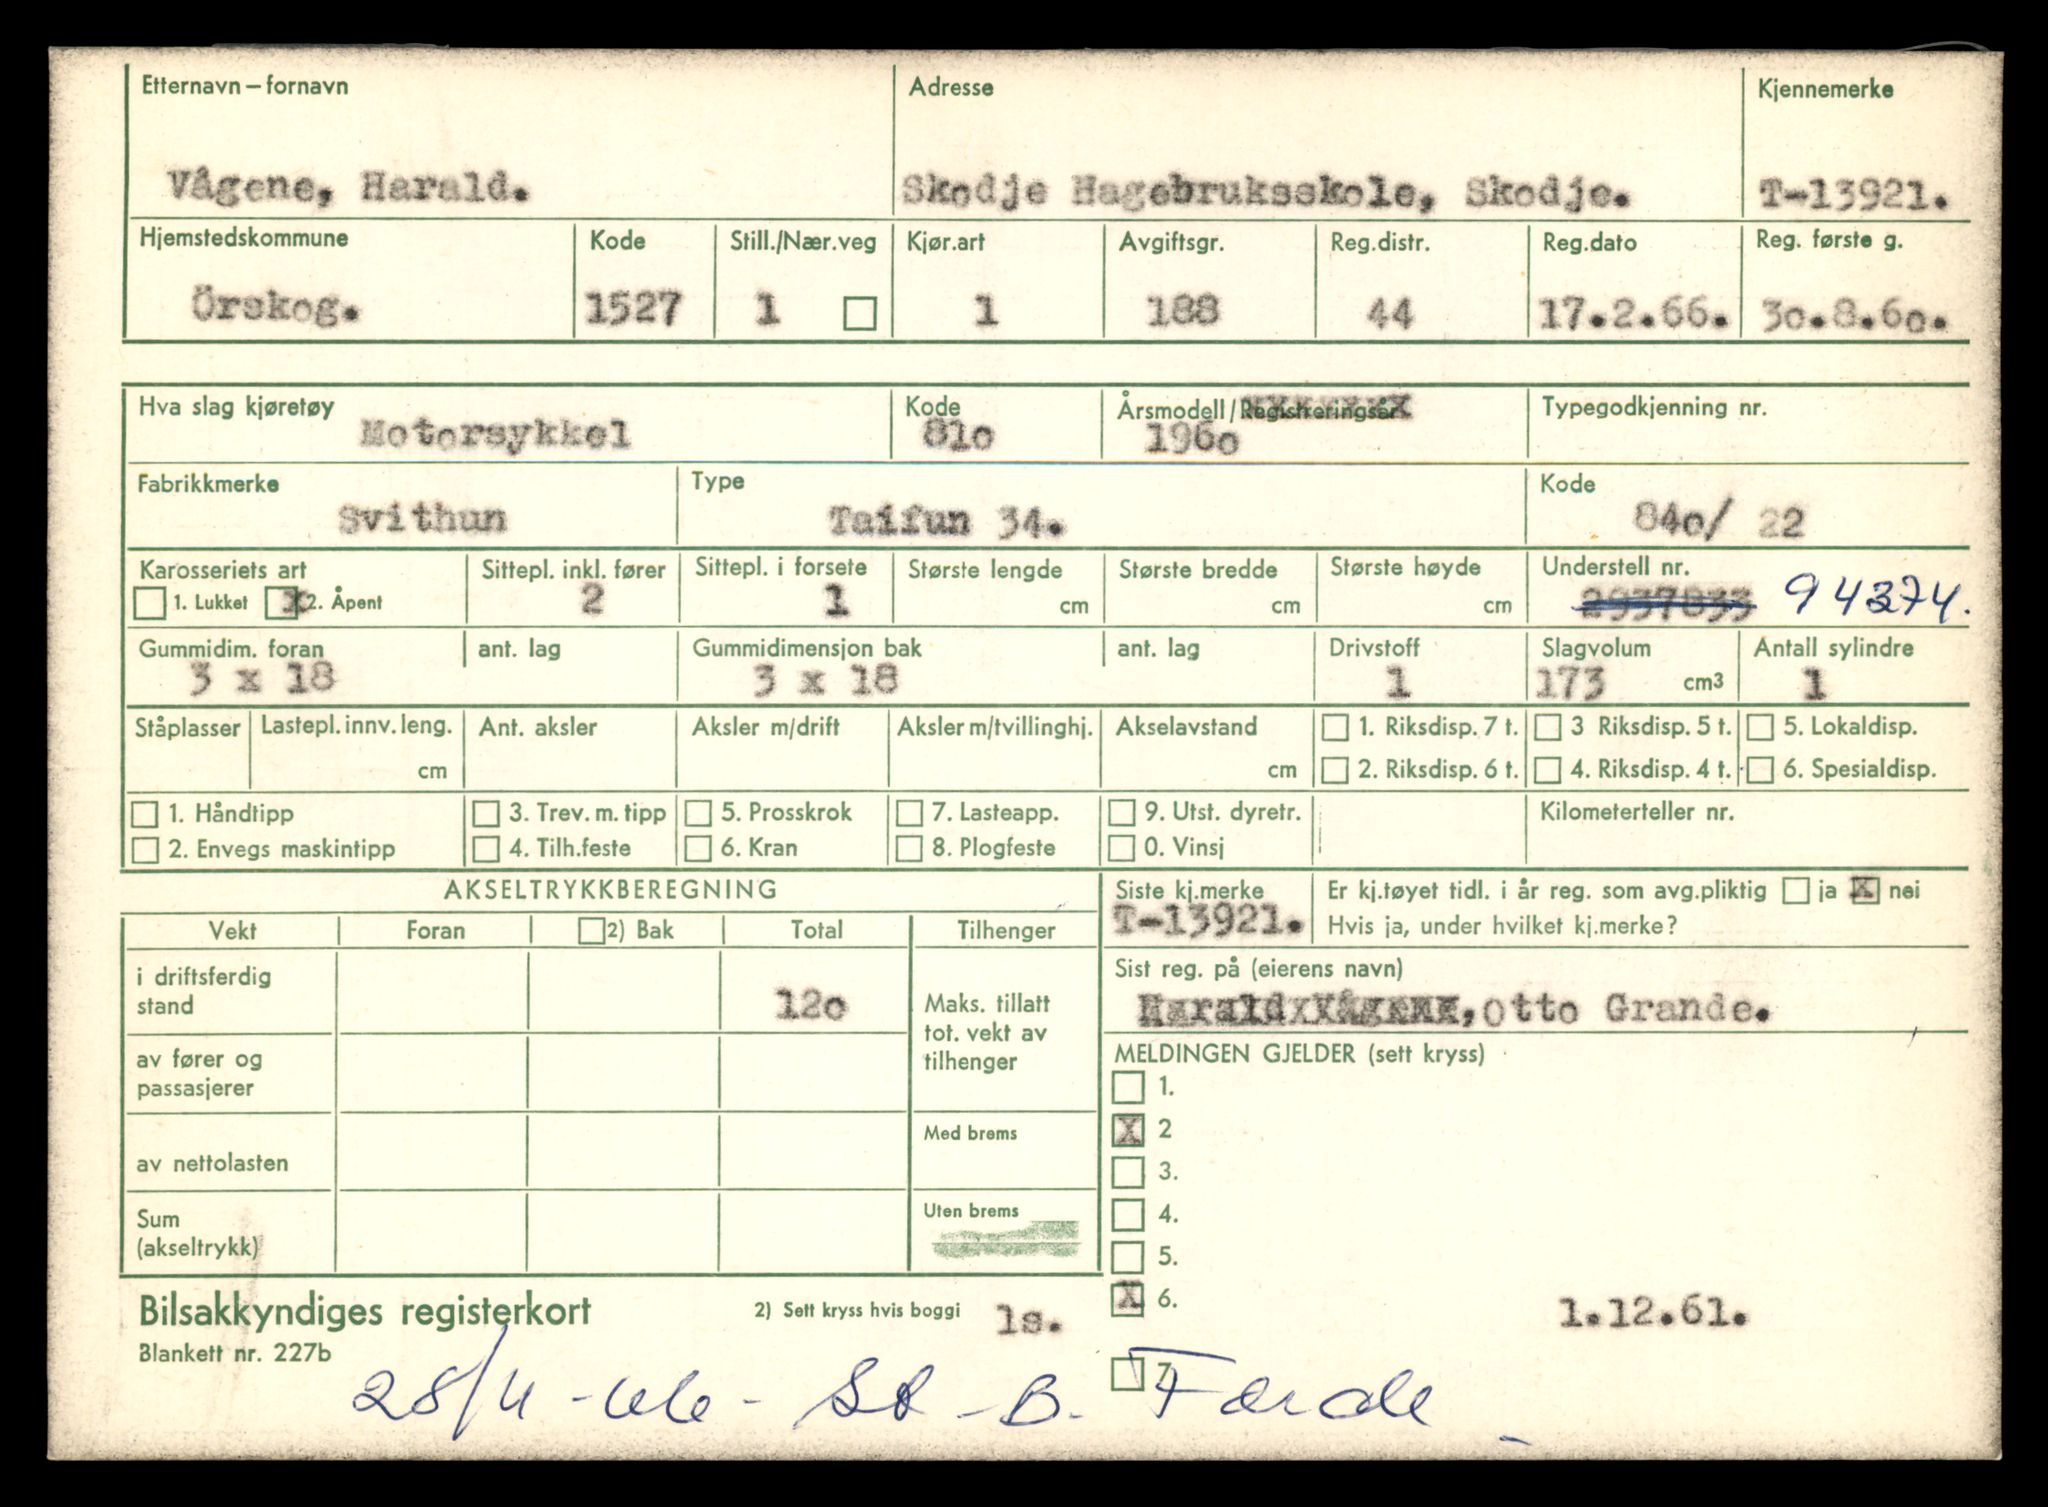 Etternavn – fornavn Adresse Kjennemerke
Vågene, Harald. Skodje Hagebruksskole, Skodje. T-13921.
Hjemstedskommune Kode Still./Nær.veg Kjør.art Avgiftsgr. Reg.distr. Reg.dato Reg. første g.
Örskog. 1527 1 1 188 44 17.2.66. 30.8.60.
Hva slag kjøretøy Kode Årsmodell/Registreringsår Typegodkjenning nr.
Motorsykkel 810 1960
Fabrikkmerke Type Kode
Svithun Taifun 34. 840/ 22
Karosseriets art Sittepl. inkl. fører Sittepl. i forsete Største lengde Største bredde Største høyde Understell nr.
1. Lukket x 2. Åpent 2 1 cm cm cm 2937833 94374.
Gummidim. foran ant. lag Gummidimensjon bak ant. lag Drivstoff Slagvolum Antall sylindre
3 x 18 3 x 18 1 173 cm3 1
Ståplasser Lastepl. innv. leng. Ant. aksler Aksler m/drift Aksler m/tvillinghj. Akselavstand 1. Riksdisp. 7 t. 3 Riksdisp. 5 t. 5. Lokaldisp.
cm cm 2. Riksdisp. 6 t. 4. Riksdisp. 4 t. 6. Spesialdisp.
1. Håndtipp 3. Trev. m. tipp 5. Prosskrok 7. Lasteapp. 9. Utst. dyretr. Kilometerteller nr.
2. Envegs maskintipp 4. Tilh.feste 6. Kran 8. Plogfeste 0. Vinsj
AKSELTRYKKBEREGNING Siste kj.merke Er kj.tøyet tidl. i år reg. som avg.pliktig ja X nei
T-13921. Hvis ja, under hvilket kj.merke?
Vekt Foran 2) Bak Total Tilhenger
Sist reg. på (eierens navn)
i driftsferdig stand 120 Maks. tillatt tot. vekt av tilhenger
Harald Vågene, Otto Grande.
av fører og passasjerer
MELDINGEN GJELDER (sett kryss)
1.
X 2
Med brems
av nettolasten
3.
Uten brems
4.
Sum (akseltrykk)
5.
X 6. 1.12.61.
Bilsakkyndiges registerkort 2) Sett kryss hvis boggi ls.
Blankett nr. 227b
7.
28/4 - 66 - St - B. Førde